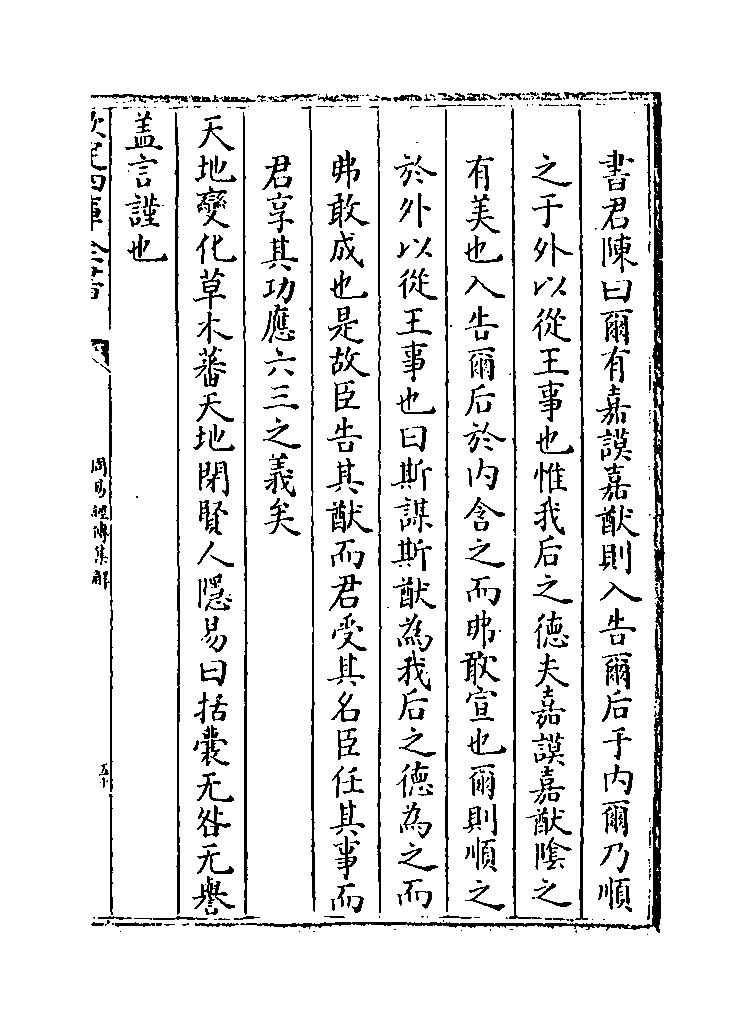 書君陳曰爾有嘉謨嘉猷則入告爾后于内爾乃順
之于外以從王事也惟我后之德夫嘉謨嘉猷隂之
有美也入告爾后於内含之而弗敢宣也爾則順之
於外以從王事也曰斯謀斯猷為我后之德為之而
弗敢成也是故臣告其猷而君受其名臣任其事而
君享其功應六三之義矣
天地變化草木蕃天地閉賢人隱易曰括囊无咎无譽
盖言謹也
欽定四庫全書
周易經傳集解
五十